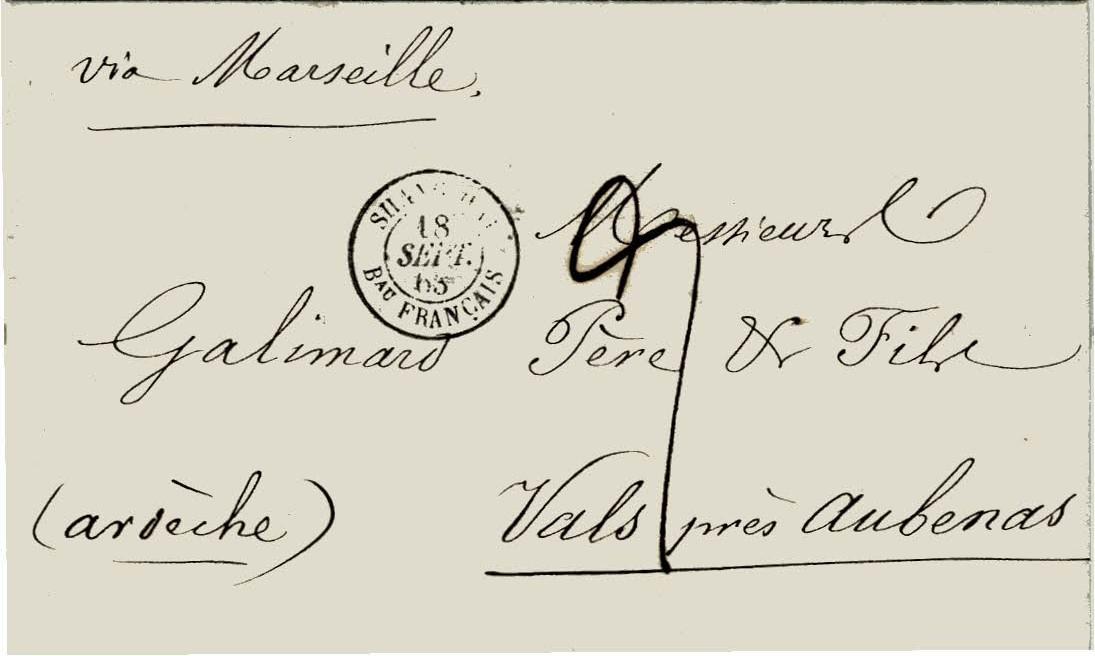 via Marseille.
SHANG HAI
18
SEPT.
65
BAU FRANÇAIS
Messieurs
Galimard Père & Fils
Vals près Aubenas
(ardèche)